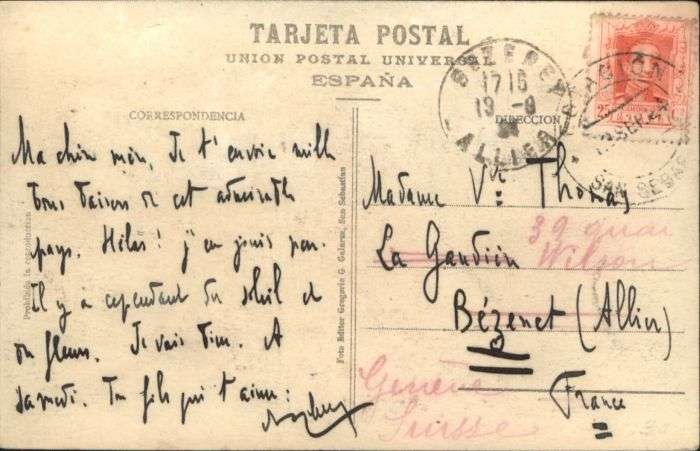 TARJETA POSTAL
UNION POSTAL UNIVERSAL
ESPAÑA
CORRESPONDENCIA
DIRECCION
BEZENET
1715
19 -9
ALLIER
ESTACION
SAN SEBAS
25
Ma chère mère, Je t'envoie mille
bons baisers de cet admirable
pays. Hélas! j'en jouis peu.
Il y a cependant du soleil et
des fleurs. Je vais bien. A
samedi. Ton fils qui t'aime:
Madame Vve Thomas
La Gaudien
39 quai
Wilson
Bézenet (Allier)
France
Genève
Suisse
Prohibida la reproducción
Foto Editor Gregorio G. Galarza, San Sebastian